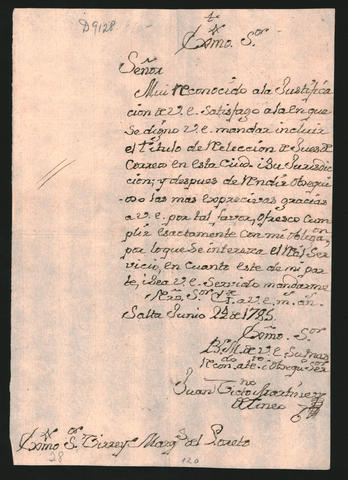 D9128
Exmo. Sor
Señor
Mui reconocido a la Justifica
cion de V. e. satisfago a la en que
Se digno V. e. mandar incluir
el titulo de Reeleccion de Jues de
Correo en esta Ciud. i Su Jurisdic
cion; y despues de Rendir Obsequi
oso las mas exprecivas gracias
a V. e. por tal favor, Ofresco Cum
plir esactamente con mi Obligaon
por lo que Se interesa el Rl. Ser
vicio, en cuanto este de mi par
te, i Sea V. e. Servido mandarme
a V. e. m. an.
Salta Junio 22 de 1785
Exmo. Sor
B. L. M. de V. e. Su mas
Recondo. ato. i Obseqte. Ser
Juan Victo Martinez
de Tineo
Exmo. Sor. Virrey Marqs. del Loreto
28
120